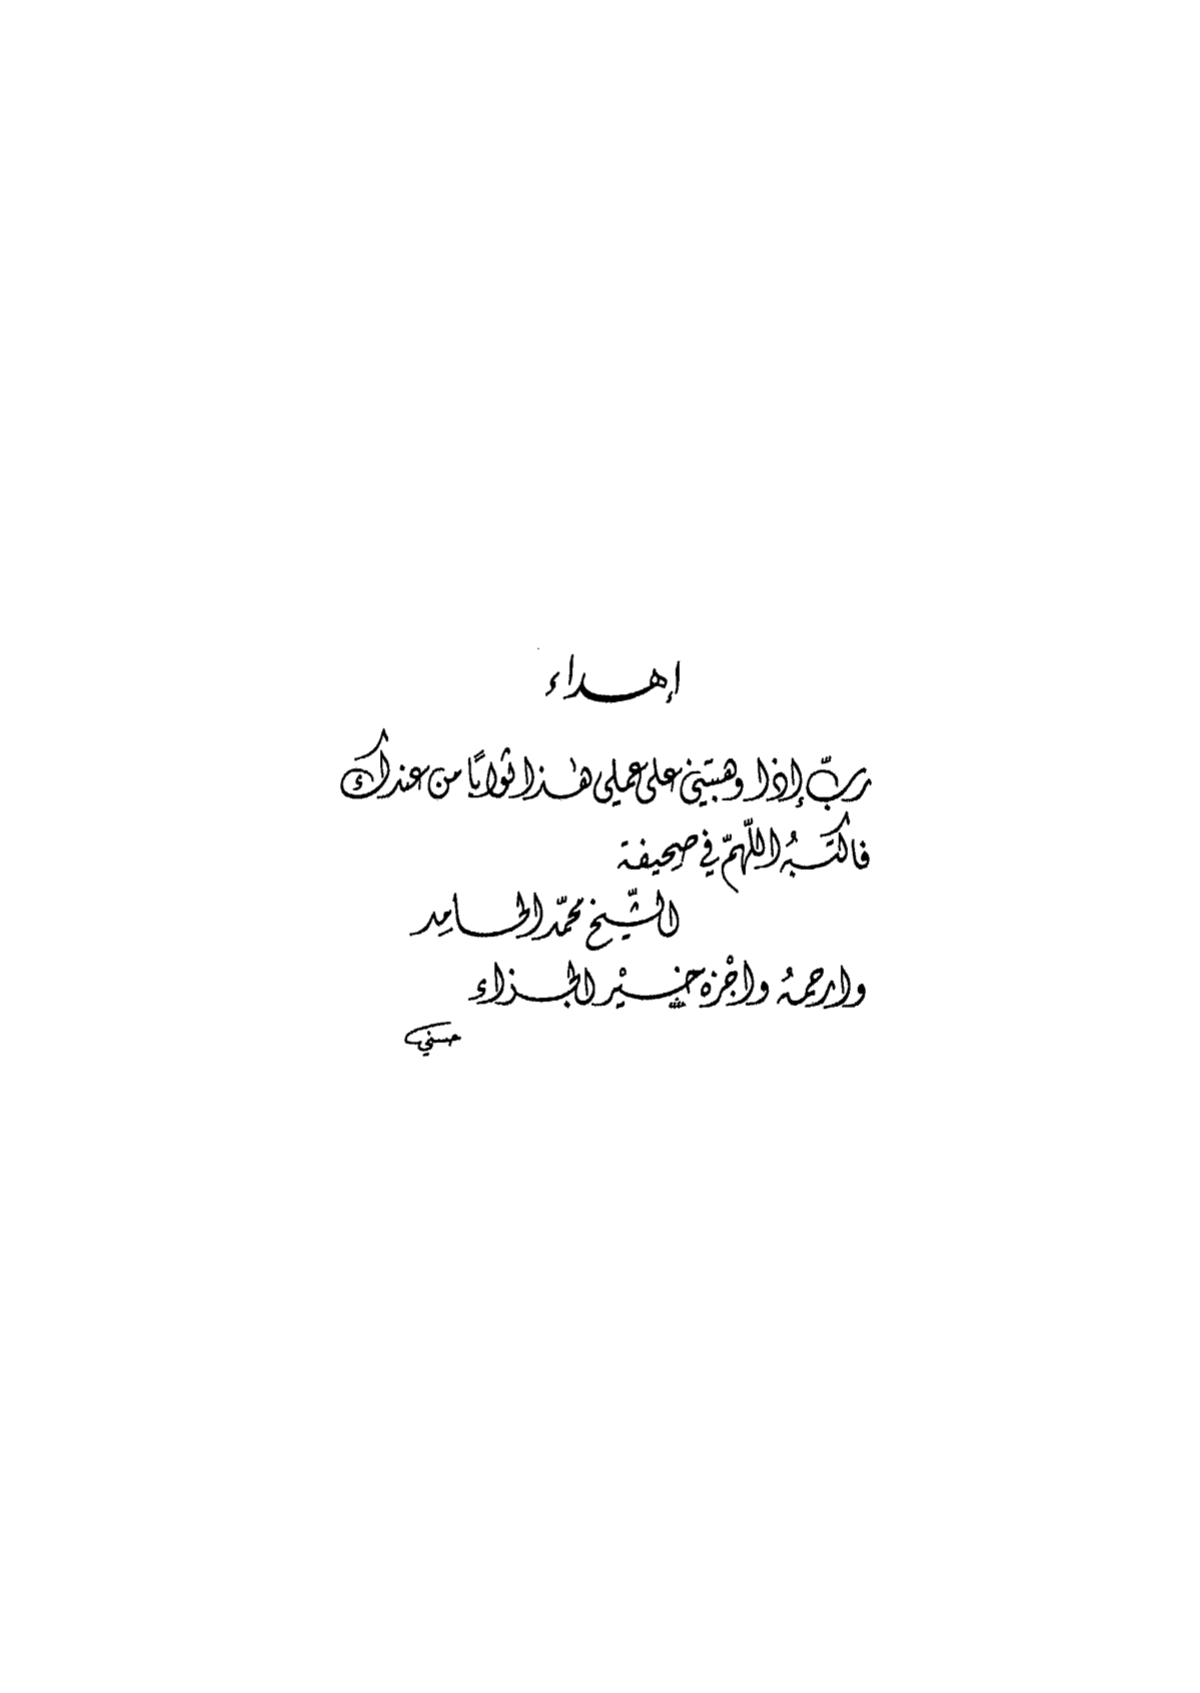 إهداء
ربّ إذا وهبتني على عملي هٰذا ثوابًا من عندك
فاكتبهُ اللّهمّ في صحيفة
الشّيخ محمّد الحامِد
وارحمهُ واجْزه خيْر الجزاءِ
حسني